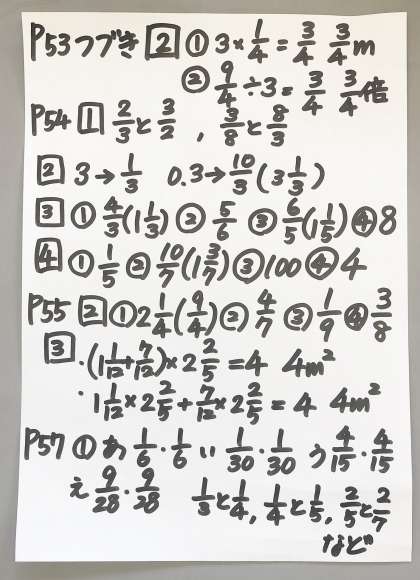 P53つづき 2 ① 3×1/4=3/4 3/4m
② 9/4÷3=3/4 3/4倍
P54 1 2/3と3/2 , 3/8と8/3
2 3→1/3 0.3→10/3(3 1/3)
3 ① 4/3(1 1/3) ② 5/6 ③ 6/5(1 1/5) ④ 8
4 ① 1/5 ② 10/7(1 3/7) ③ 100 ④ 4
P55 2 ① 2 1/4(9/4) ② 4/7 ③ 1/9 ④ 3/8
3 ・(1 1/12+7/12)×2 2/5=4 4m²
・1 1/12×2 2/5+7/12×2 2/5=4 4m²
P57 ① あ 1/6・1/6 い 1/30・1/30 う 4/15・4/15
え 9/28・9/28 1/3と1/4, 1/4と1/5, 2/5と2/7
など